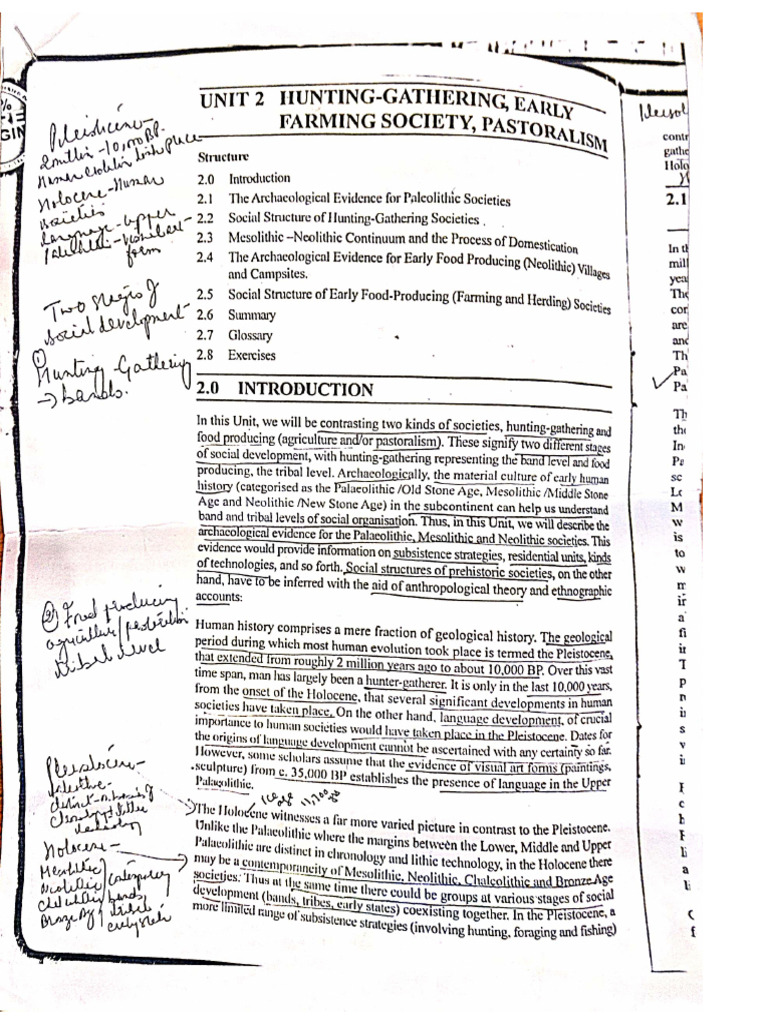 UNIT 2 HUNTING-GATHERING, EARLY
FARMING SOCIETY, PASTORALISM
Structure
2.0 Introduction
2.1 The Archaeological Evidence for Paleolithic Societies
2.2 Social Structure of Hunting-Gathering Societies
2.3 Mesolithic –Neolithic Continuum and the Process of Domestication
2.4 The Archaeological Evidence for Early Food Producing (Neolithic) Villages
and Campsites.
2.5 Social Structure of Early Food-Producing (Farming and Herding) Societies
2.6 Summary
2.7 Glossary
2.8 Exercises
2.0 INTRODUCTION
In this Unit, we will be contrasting two kinds of societies, hunting-gathering and
food producing (agriculture and/or pastoralism). These signify two different stages
of social development, with hunting-gathering representing the band level and food
producing, the tribal level. Archaeologically, the material culture of early human
history (categorised as the Palaeolithic /Old Stone Age, Mesolithic /Middle Stone
Age and Neolithic /New Stone Age) in the subcontinent can help us understand
band and tribal levels of social organisation. Thus, in this Unit, we will describe the
archaeological evidence for the Palaeolithic, Mesolithic and Neolithic societies. This
evidence would provide information on subsistence strategies, residential units, kinds
of technologies, and so forth. Social structures of prehistoric societies, on the other
hand, have to be inferred with the aid of anthropological theory and ethnographic
accounts:
Human history comprises a mere fraction of geological history. The geological
period during which most human evolution took place is termed the Pleistocene,
that extended from roughly 2 million years ago to about 10,000 BP. Over this vast
time span, man has largely been a hunter-gatherer. It is only in the last 10,000 years,
from the onset of the Holocene, that several significant developments in human
societies have taken place. On the other hand, language development, of crucial
importance to human societies would have taken place in the Pleistocene. Dates for
the origins of language development cannot be ascertained with any certainty so far.
However, some scholars assume that the evidence of visual art forms (paintings,
sculpture) from c. 35,000 BP establishes the presence of language in the Upper
Palaeolithic.
The Holocene witnesses a far more varied picture in contrast to the Pleistocene.
Unlike the Palaeolithic where the margins between the Lower, Middle and Upper
Palaeolithic are distinct in chronology and lithic technology, in the Holocene there
may be a contemporaneity of Mesolithic, Neolithic, Chalcolithic and Bronze Age
societies. Thus at the same time there could be groups at various stages of social
development (bands, tribes, early states) coexisting together. In the Pleistocene, a
more limited range of subsistence strategies (involving hunting, foraging and fishing)
Pleistocene-
2 million-10,000 BP.
Human evolution birth place
Holocene-Human
societies
language-upper
Palaeolithic-visual art
form
Two stages of
social development-
① Hunting-Gathering
→ bands.
② Food producing
agriculture/pastoralism
tribal level
Pleistocene-
Holocene-
Mesolithic
Neolithic
Chalcolithic
Bronze Age
bands
tribes
early state
Ice age 11,700
2.1